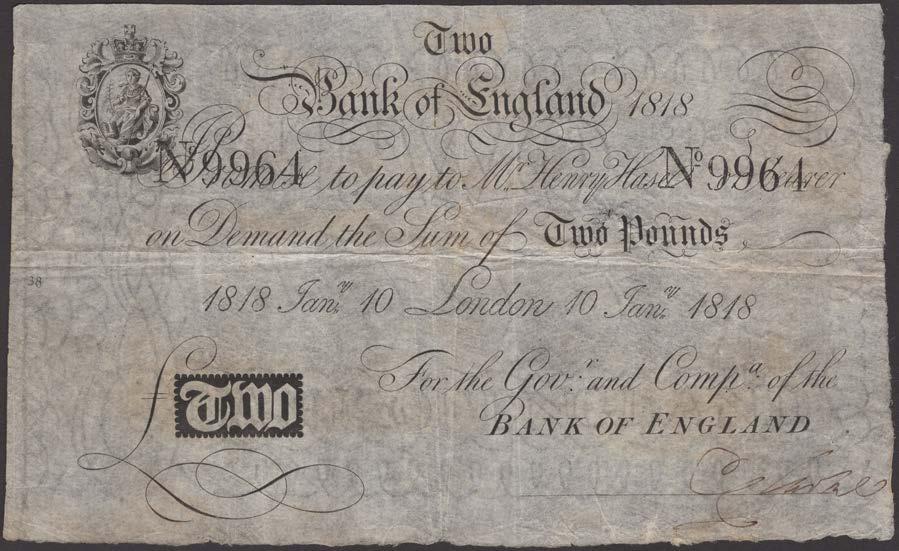 Two
Bank of England 1818
Nº 9964 Promise to pay to Mr. Henry Hase Nº 9964 or Bearer
on Demand the Sum of Two Pounds
38
1818 Jan.ry 10 London 10 Jan.ry 1818
For the Gov.r and Comp.a of the
£ Two
BANK OF ENGLAND.